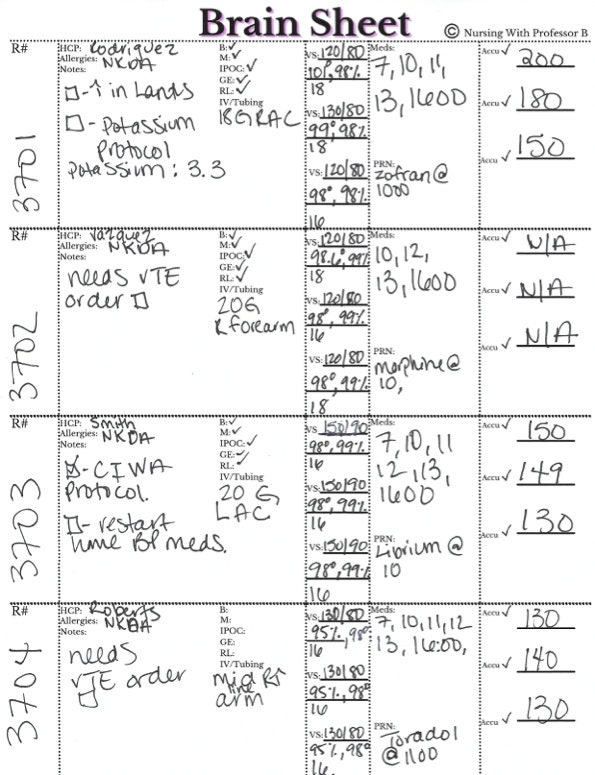 Brain Sheet
© Nursing With Professor B
R#
3701
HCP: Rodriguez
Allergies: NKDA
Notes:
☐-↑ in Lands
☐- Potassium
Protocol
Potassium: 3.3
B:✓
M:✓
IPOC:✓
GE:✓
RL:✓
IV/Tubing
18G RAC
VS:120/80
101°, 98%
18
VS:130/80
99°, 98%
18
VS:120/80
98°, 98%
16
Meds:
7, 10, 11,
13, 1600
PRN:
Zofran @
1000
Accu ✓ 200
Accu ✓ 180
Accu ✓ 150
R#
3702
HCP: Vazquez
Allergies: NKDA
Notes:
needs VTE
order ☐
B:✓
M:✓
IPOC:✓
GE:✓
RL:✓
IV/Tubing
20G
R forearm
VS:120/80
98.6°, 99%
18
VS:120/80
98°, 99%
16
VS:120/80
98°, 99%
18
Meds:
10, 12,
13, 1600
PRN:
morphine @
10,
Accu ✓ N/A
Accu ✓ N/A
Accu ✓ N/A
R#
3703
HCP: Smith
Allergies: NKDA
Notes:
☑-CIWA
Protocol.
☐- restart
home BP meds.
B:✓
M:✓
IPOC:✓
GE:✓
RL:✓
IV/Tubing
20 G
LAC
VS 150/90
98°, 99%
16
VS:150/90
98°, 99%
16
VS:150/90
98°, 99%
16
Meds:
7, 10, 11
12, 13,
1600
PRN:
Librium @
10
Accu ✓ 150
Accu ✓ 149
Accu ✓ 130
R#
3704
HCP: Roberts
Allergies: NKDA
Notes:
needs
VTE order
☐
B:
M:
IPOC:
GE:
RL:
IV/Tubing
mid R↑
line
arm
VS:130/80
95%, 98°
16
VS:130/80
95%, 98°
16
VS:130/80
95%, 98°
16.
Meds:
7, 10, 11, 12
13, 16:00,
PRN:
Toradol
@ 1100
Accu ✓ 130
Accu ✓ 140
Accu ✓ 130